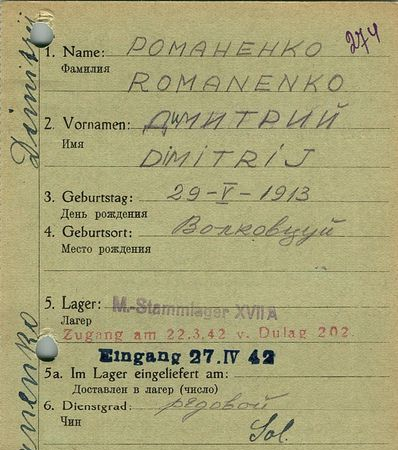 274
1. Name: РОМАНЕНКО
Фамилия
ROMANENKO
2. Vornamen: ДИМИТРИЙ
Имя
DIMITRIJ
3. Geburtstag: 29-V-1913
День рождения
4. Geburtsort:
Место рождения
5. Lager: M.-Stammlager XVII A
Лагер
Zugang am 22.3.42 v. Dulag 202.
Eingang 27. IV 42
5a. Im Lager eingeliefert am:
Доставлен в лагер (число)
6. Dienstgrad: рядовой
Чин
Sol.
Dimitrij
nenko